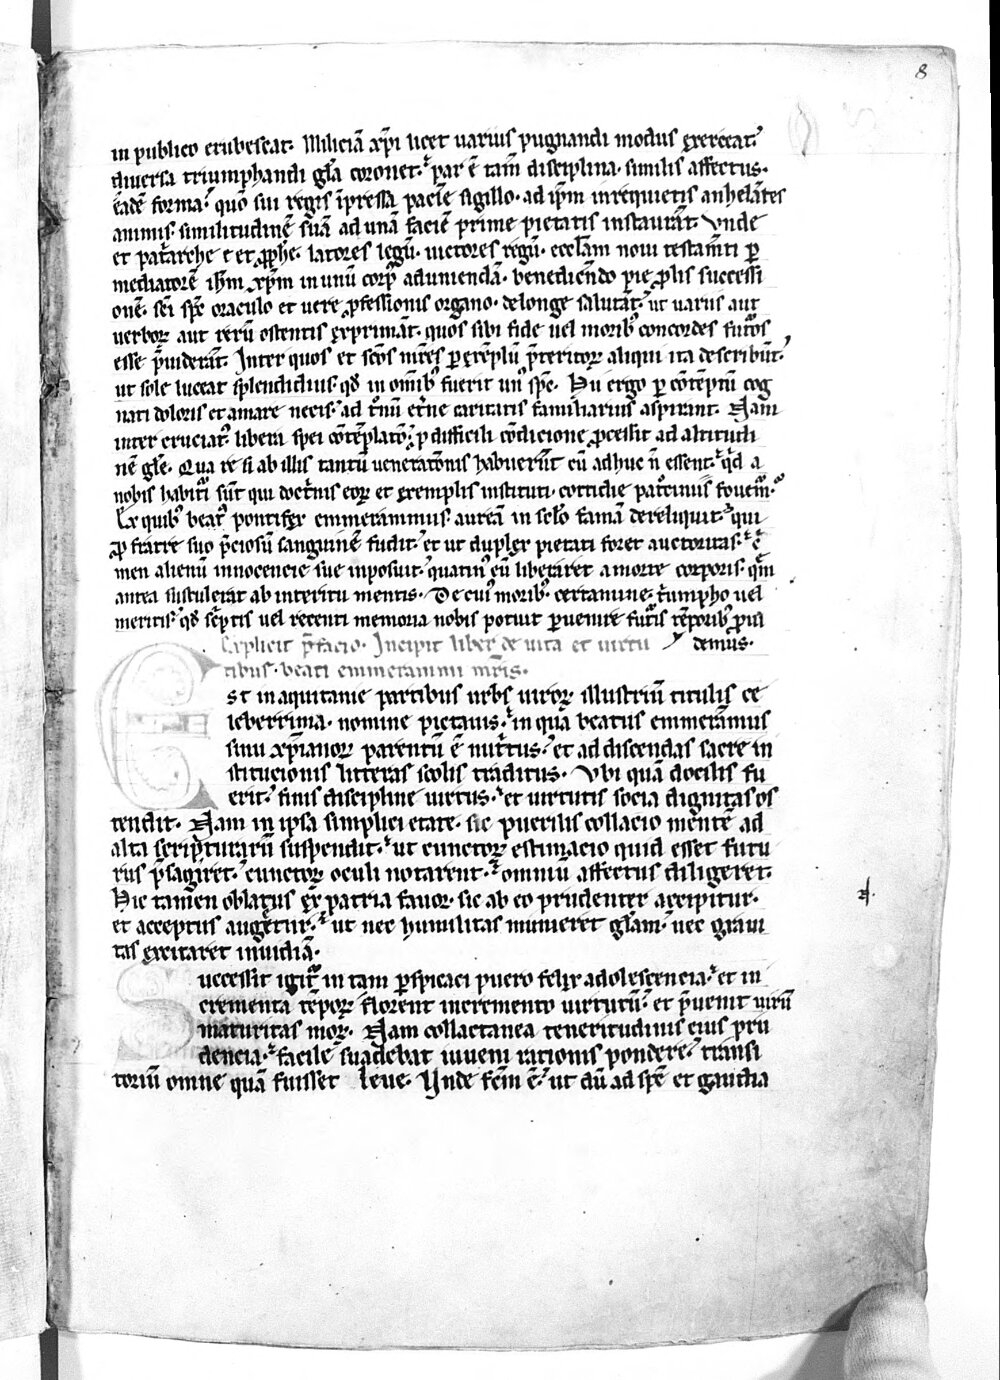 8
in publico erubescat. Miliciā xp̄i licet uarius pugnandi modus exerceat.
diuersa triumphandi gl̄a coronet. par ē tam̄ disciplina. similis affectus.
ēadē forma. quō sui regis īpressa pacīe sigillo. ad ip̄m inrequietis anhelātes
animis. similitudinē suā ad unā faciē prime pietatis instaurāt. Vnde
et pat̄arche et ꝓph̄e. latores legū. uictores regū. eccl̄am noui testam̄ti ꝑ
mediatorē ih̄m xp̄m in unū corpꝰ aduniendā. benedicēdo pie ꝓlis successi
onē. sc̄i sp̄c oraculo et uere ꝓfessionis organo. delonge salutāt. ut uariis aut
uerboꝝ aut rerū ostentis exprimāt. quos sibi fide uel moribꝰ concordes fut̄os
esse p̄uiderāt. Inter quos et sc̄os mr̄es ꝑ exēplū p̄teritoꝝ aliqui ita describūt.
ut sole luceat splendidius. qd̄ in om̄ibꝰ fuerit unꝰ sp̄c. Hii ergo ꝑ cōtēptū cog
nati doloris et amare necis. ad t̄nū et̄ne caritatis familiarius aspirant. Nam
inter cruciatꝰ liberi spei cōtēplatōe. ꝑ difficili cōdicione ꝓcessit ad altitudi
nē gl̄e. Qua re si ab illis tantū uenerat̄onis habuerūt cū adhuc n̄ essent. qd̄ a
nobis habit̄i sūt qui doct̄nis eoꝝ et exemplis instituti. cottidie pat̄ciniis fouem̄.
Ex quibꝰ beatꝰ pontifex emmerammus. aureā in sclō famā dereliquit. qui
ꝓ fratre suo p̄ciosū sanguinē fudit. et ut duplex pietati foret auctoritas. c̄
men alienū innocencie sue inposuit. quatinꝰ eū liberaret a morte corporis. quē
antea sustulerat ab interitu mentis. De cuiꝰ moribꝰ. certamine. t̄umpho uel
meritis. qd̄ sc̄ptis uel recenti memoria nobis potuit ꝑuenire fut̄is tēporibꝰ ꝓpa
Explicit p̄facio. Incipit liber de uita et uirtu demus.
tibus. beati emmerammi mr̄is.
EST in aquitanie partibus urbs uiroꝝ illustriū titulis ce
leberrima. nomine pictauis. in qua beatus emmerāmus
sinu xp̄ianoꝝ parentū ē nut̄tus. et ad discendas sacre in
stitucionis litteras scolis traditus. Vbi quā docilis fu
erit. finis discipline uirtus. et uirtutis socia dignitas os
tendit. Nam in ipsa simplici etate. sic puerilis collacio mentē ad
alta scripturarū suspendit. ut cunctoꝝ estimacio quid esset futu
rus p̄sagiret. cunctoꝝ oculi notarent. omniū affectus diligeret.
Hic tamen oblatus ex patria fauor. sic ab eo prudenter accipitur.
et acceptus augetur. ut nec humilitas minueret gl̄am. nec graui
tas excitaret inuidiā.
Successit igit̄ in tam ꝑspicaci puero felix adolescencia. et in
crementa tēpoꝝ florent incremento uirtutū. et p̄uenit uirū
maturitas moꝝ. Nam collactanea teneritudinis eius pru
dencia. facile suadebat iuueni rationis pondere. transi
toriū omne quā fuisset leue. Unde fc̄m ē. ut dū ad spē et gaudia